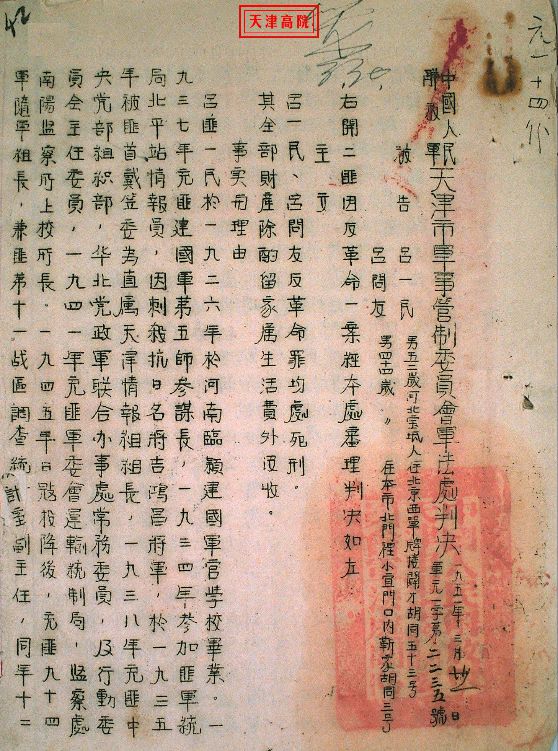 天津高院
42
中國人民解放軍天津市軍事管制委員會軍法處判决
一九五一年三月卅一日
軍元一字第二二三五號
被告 呂一民 男五二歲河北宝坻人住北京西單辟才胡同五十三号
呂問友 男四四歲〃 住本市北門裡小宜門口內靳家胡同三号
右開二匪因反革命一案經本處審理判决如左
主文
呂一民、呂問友反革命罪均處死刑。
其全部財產除酌留家屬生活費外没收。
事实和理由
呂匪一民於一九二六年於河南臨颍建國軍官學校畢業。一
九三七年充匪建國軍第五師參謀長，一九三四年参加匪軍統
局北平站情報員，因刺殺抗日名將吉鴻昌將軍，於一九三五
年被匪首戴笠委為直屬天津情報組組長，一九三八年充匪中
央党部組織部，华北党政軍联合办事處常務委員，及行動委
員会主任委員，一九四一年充匪軍委會運輸統制局，监察處
南陽监察所上校所長。一九四五年日寇投降後，充匪九十四
軍隨軍組長，兼匪第十一战區調查統計室副主任，同年十二